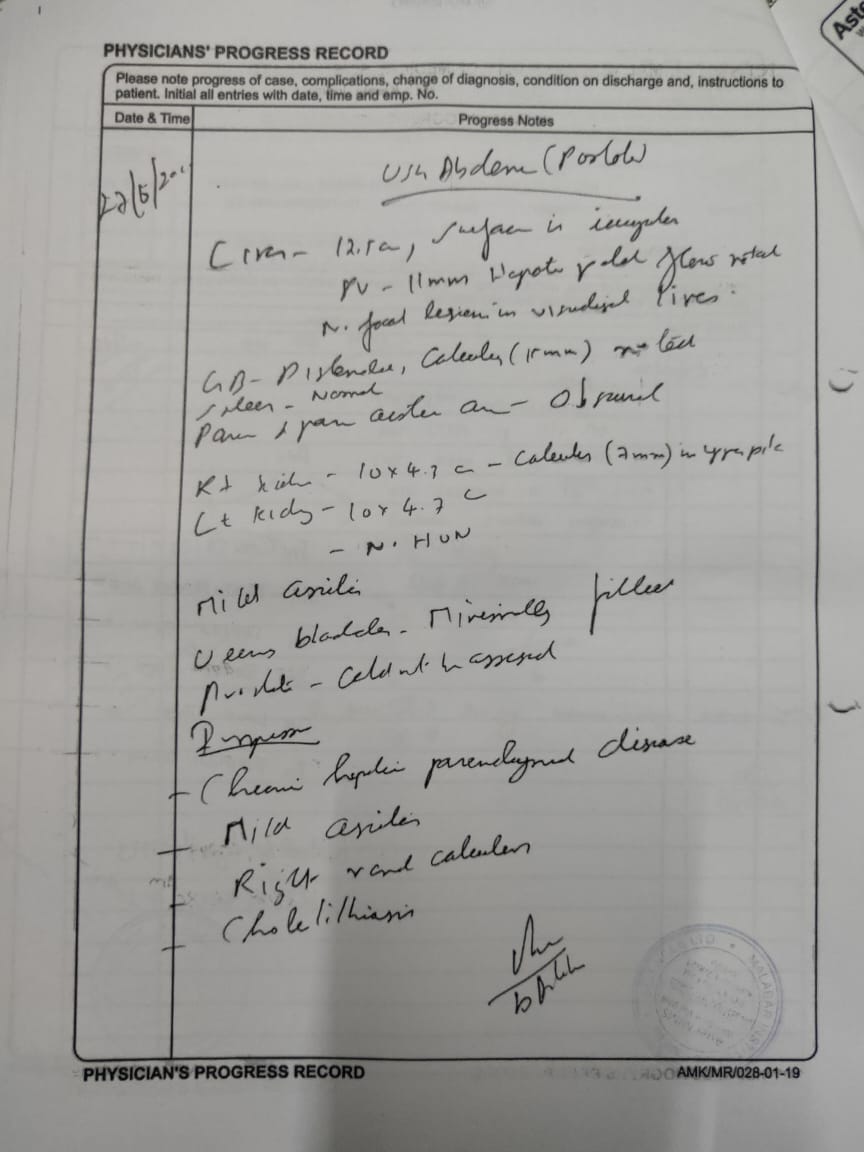 PHYSICIANS' PROGRESS RECORD
Please note progress of case, complications, change of diagnosis, condition on discharge and, instructions to
patient. Initial all entries with date, time and emp. No.
Date & Time
Progress Notes
USG Abdomen (Portable)
Liver - 12.5cm, Surface is irregular
PV - 11mm Hepato petal flow noted
No focal lesion in visualized liver.
GB - Distended, Calculus (15mm) noted
Spleen - Normal
Panc & para aortic area - Obscured
Rt kidn - 10 x 4.7 c - Calculus (7mm) in
Lt Kidny - 10 x 4.7 c
- No HUN
Mild ascites
bladder - Minimally filled
Prostate - Could not be assessed
Impression
- Chronic hepatic parenchymal disease
- Mild ascites
- Right renal calculus
- Cholelithiasis
MALABAR
PHYSICIAN'S PROGRESS RECORD
AMK/MR/028-01-19